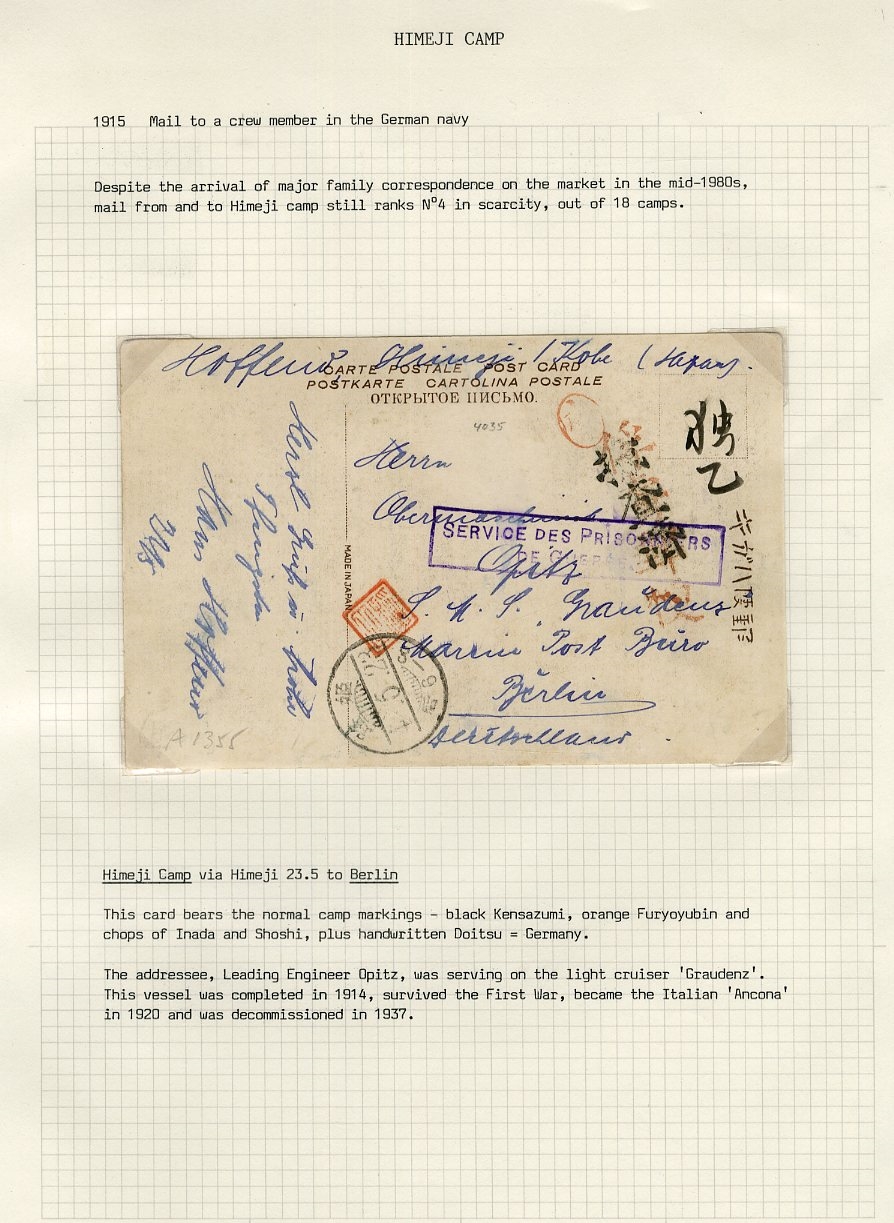 HIMEJI CAMP
1915 Mail to a crew member in the German navy
Despite the arrival of major family correspondence on the market in the mid-1980s,
mail from and to Himeji camp still ranks Nº4 in scarcity, out of 18 camps.
Himeji / Kobe (Japan).
CARTE POSTALE POST CARD
POSTKARTE CARTOLINA POSTALE
ОТКРЫТОЕ ПИСЬМО.
4035
独乙
Herrn
SERVICE DES PRISONNIERS
DE GUERRE
Opitz
S. M. S. Graudenz
Marine Post Büro
Berlin
Deutschland
MADE IN JAPAN
Herzl.
Hans
A 1355
Himeji Camp via Himeji 23.5 to Berlin
This card bears the normal camp markings - black Kensazumi, orange Furyoyubin and
chops of Inada and Shoshi, plus handwritten Doitsu = Germany.
The addressee, Leading Engineer Opitz, was serving on the light cruiser 'Graudenz'.
This vessel was completed in 1914, survived the First War, became the Italian 'Ancona'
in 1920 and was decommissioned in 1937.